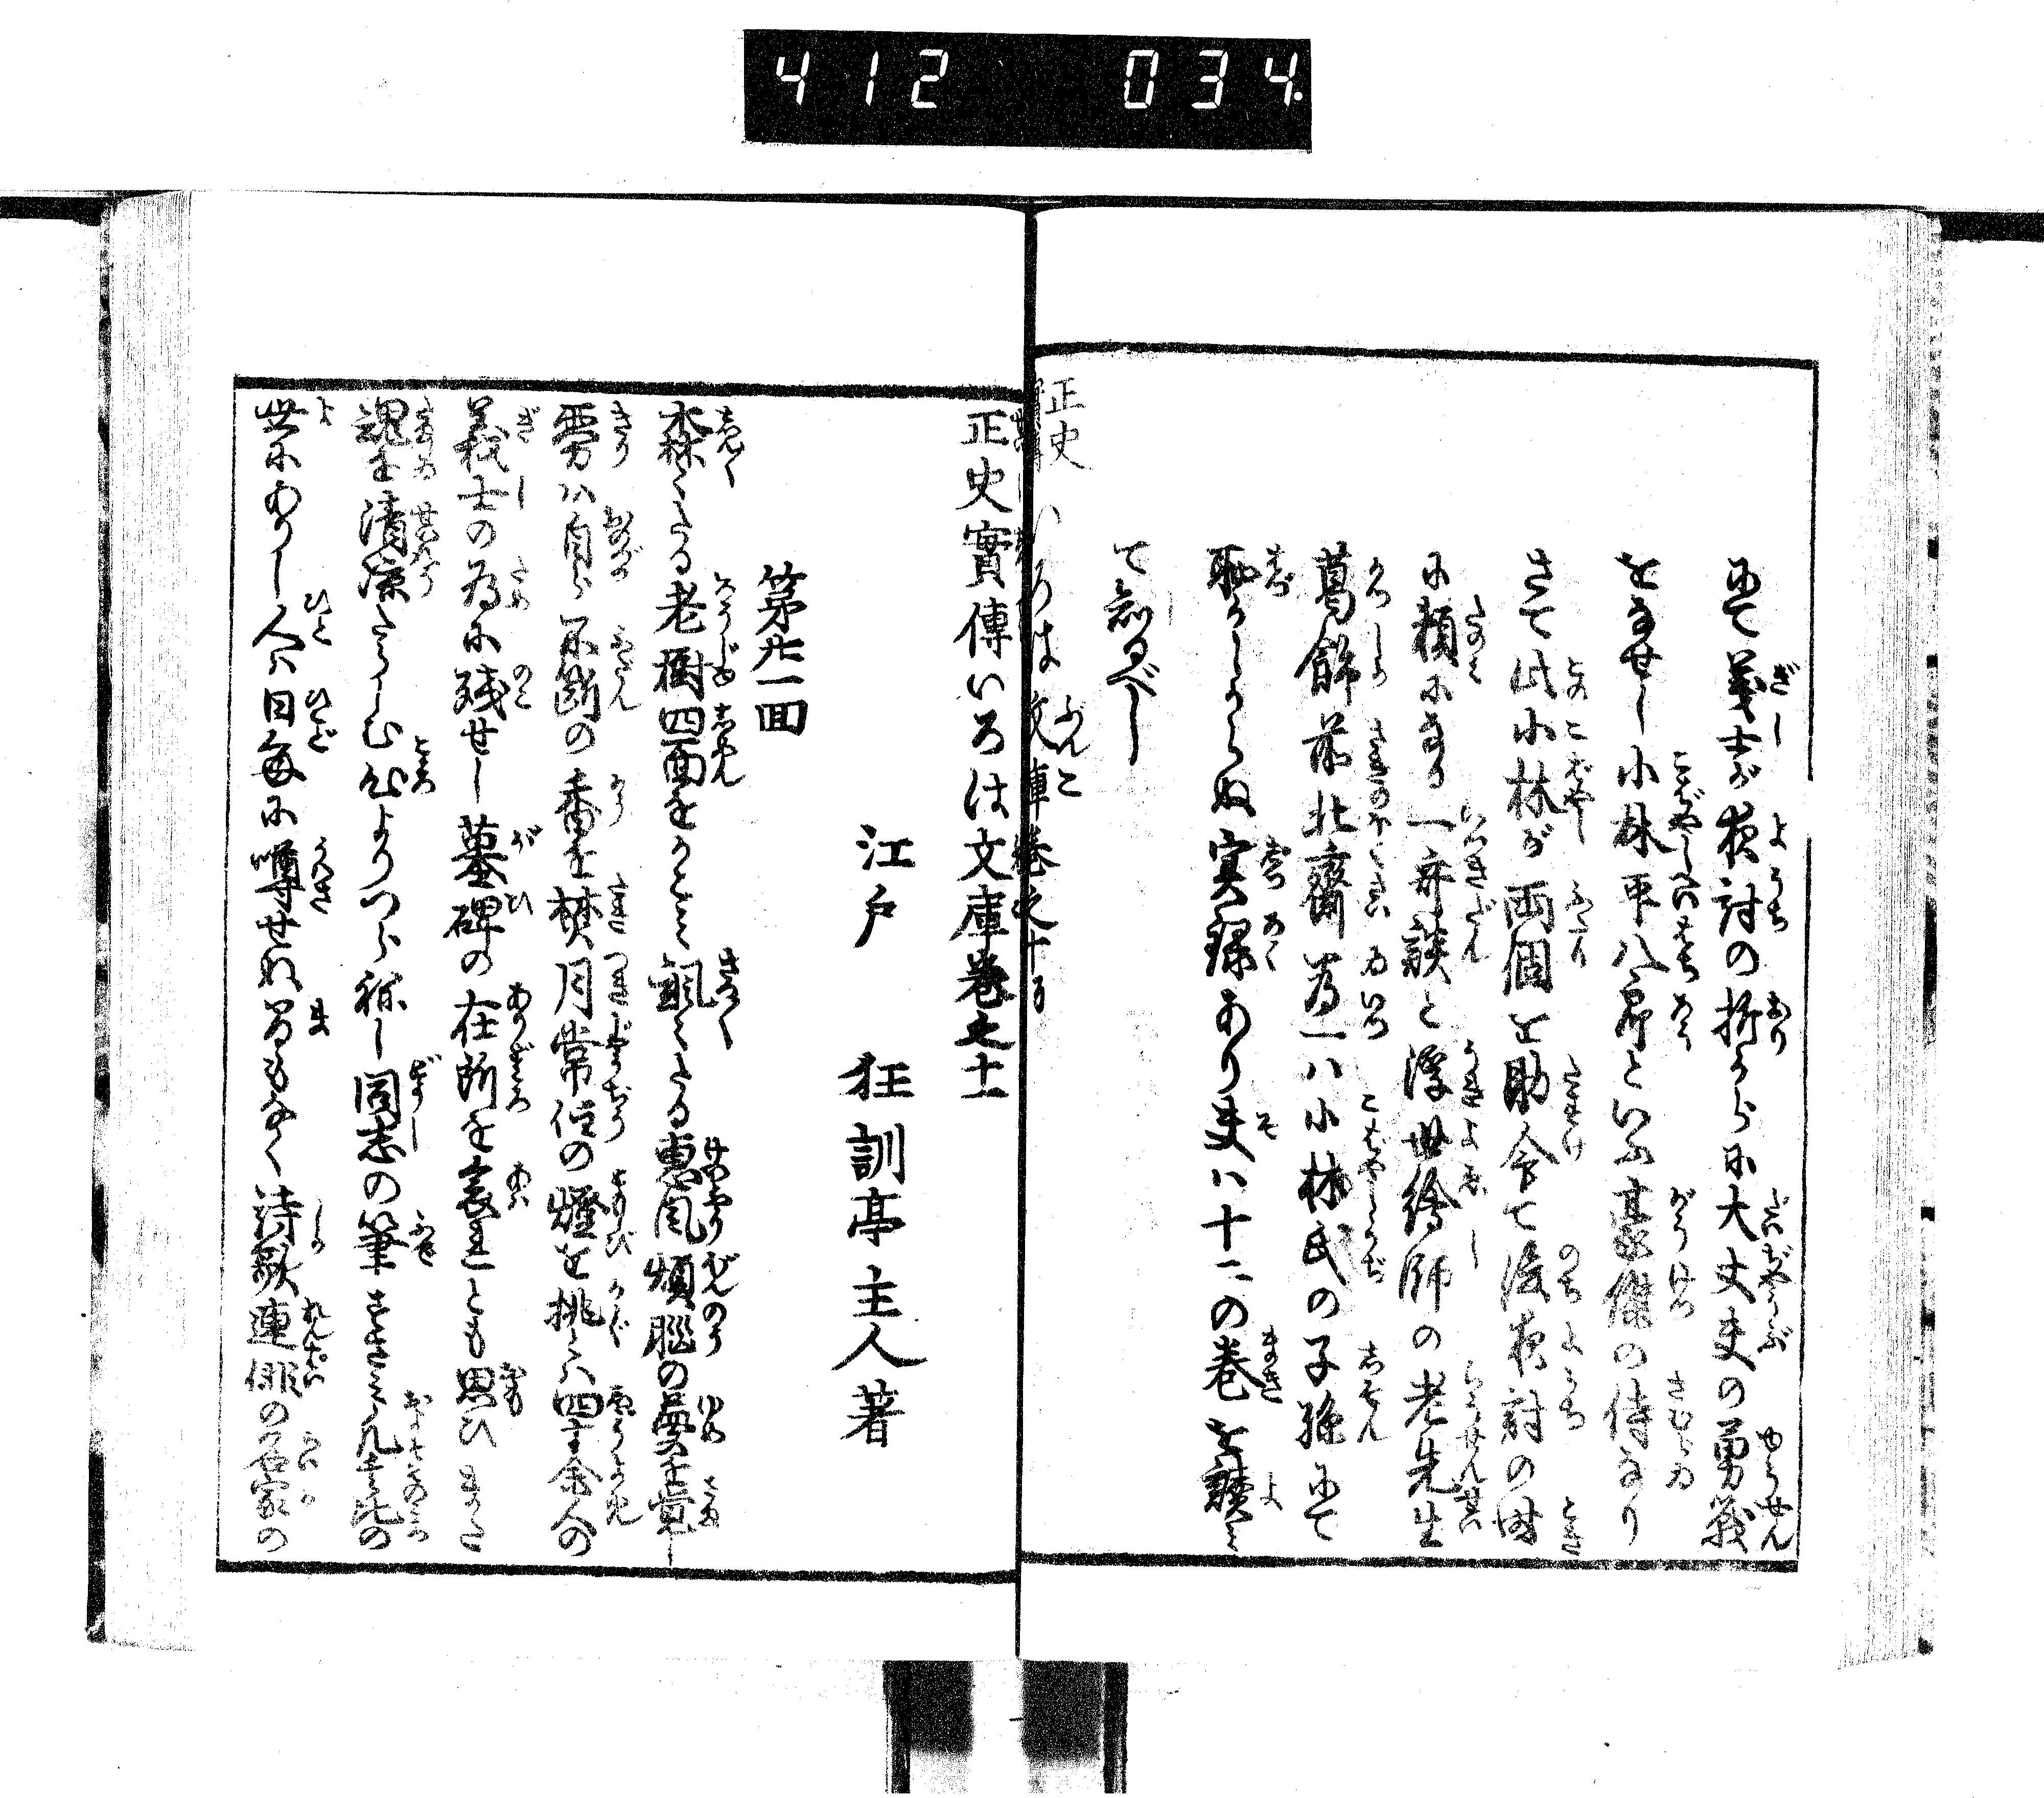 412 034.
にて義士が夜討の折からに大丈夫の勇戦
をなせし小林平八郎といふ豪傑の侍なり
さて此小林が両個を助命て後夜討の時
に頼になる一奇談と浮世絵師の老先生
葛飾前北齋為一ハ小林氏の子孫にて
耻かしからぬ実録あり夫ハ十二の巻を讀て
て知るべし
正史
正史實傳いろは文庫巻之十一
江戸 狂訓亭主人著
第廿一回
森〻たる老樹四面をかこみ颯〻たる恵風煩脳の夢を覚し
雰ハ自ら不断の香を焚月常住の燈を挑ぐ四十余人の
義士の為に残せし墓碑の在所を哀れとも思ひまた
魂を清潔たらしむ処よりつら祢し同志の筆すさみ凡そ此
世にありし人ハ日毎に噂せぬ間もなく詩歌連俳の名家の